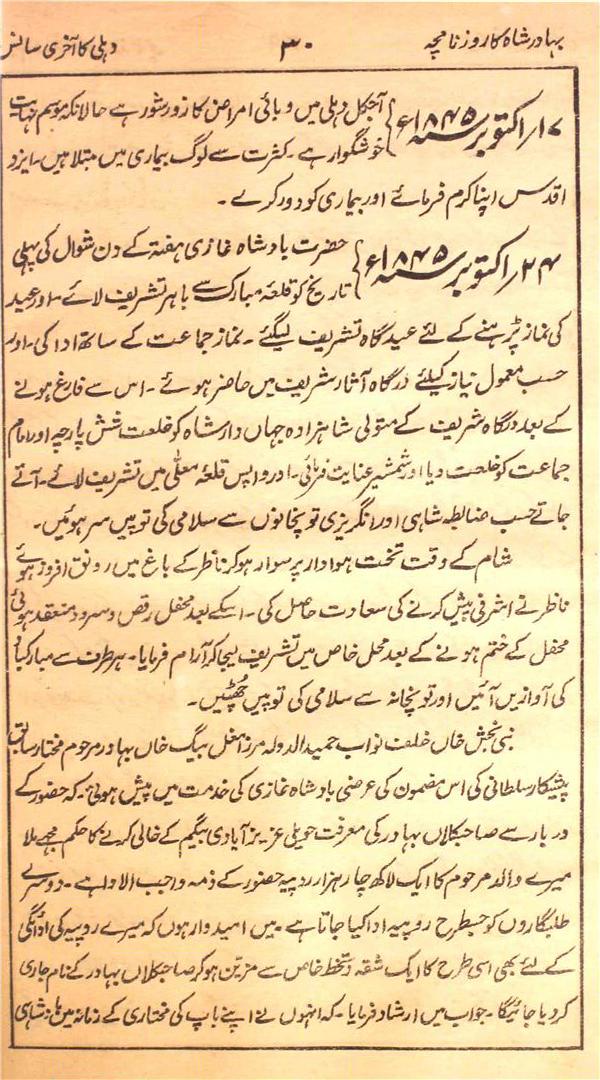 بہادر شاہ کا روزنامچہ ۳۰ دہلی کا آخری سانس
۱۷؍اکتوبر ۱۸۴۵ء آجکل دہلی میں وبائی امراض کا زور شور ہے حالانکہ موسم نہایت
خوشگوار ہے ۔ کثرت سے لوگ بیماری میں مبتلا ہیں ۔ ایزد
اقدس اپنا کرم فرمائے اور بیماری کو دور کرے ۔
۲۴؍اکتوبر ۱۸۴۵ء حضرت بادشاہ غازی ہفتہ کے دن شوال کی پہلی
تاریخ کو قلعۂ مبارک سے باہر تشریف لائے ۔ اور عید
کی نماز پڑہنے کے لئے عید گاہ تشریف لیگئے ۔ نماز جماعت کے ساتھ ادا کی ۔ اور
حسب معمول نیاز کیلئے درگاہ آثار شریف میں حاضر ہوئے ۔ اس سے فارغ ہونے
کے بعد درگاہ شریف کے متولی شاہزادہ جہاں دار شاہ کو خلعت شش پارچہ اور امام
جماعت کو خلعت دیا اور شمشیر عنایت فرمائی ۔ اور واپس قلعۂ معلّٰی میں تشریف لائے ۔ آتے
جاتے حسب ضابطہ شاہی اور انگریزی توپخانوں سے سلامی کی توپیں سر ہوئیں ۔
شام کے وقت تخت ہوادار پر سوار ہوکر ناظر کے باغ میں رونق افروز ہوئے
ناظر نے اشرفی پیش کرنے کی سعادت حاصل کی ۔ اسکے بعد محفل رقص و سرود منعقد ہوئی
محفل کے ختم ہونے کے بعد محل خاص میں تشریف لیجاکر آرام فرمایا ۔ ہر طرف سے مبارکباد
کی آوازیں آئیں اور توپخانہ سے سلامی کی توپیں چُھٹیں ۔
نبی بخش خاں خلف نواب حمید الدولہ مرزا مغل بیگ خاں بہادر مرحوم مختار سابق
پیشکار سلطانی کی اس مضمون کی عرضی بادشاہ غازی کی خدمت میں پیش ہوئی ۔ کہ حضور کے
دربار سے صاحبکلاں بہادر کی معرفت حویلی عزیز آبادی بیگم کے خالی کرنے کا حکم مجھے ملا
میرے والد مرحوم کا ایک لاکھ چار ہزار روپیہ حضور کے ذمہ واجب الادا ہے ۔ دوسرے
طلبگاروں کو جسطرح روپیہ ادا کیا جاتا ہے ۔ میں امیدوار ہوں کہ میرے روپیہ کی ادائگی
کے لئے بھی اسی طرح کا ایک شقہ دستخط خاص سے مزیّن ہوکر صاحبکلاں بہادر کے نام جاری
کردیا جائیگا ۔ جواب میں ارشاد فرمایا ۔ کہ انہوں نے اپنے باپ کی مختاری کے زمانہ میں شاہی